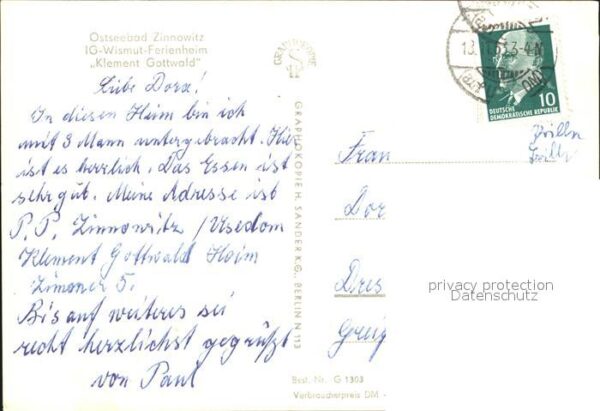 Ostseebad Zinnowitz
IG-Wismut-Ferienheim
„Klement Gottwald"
Liebe Dora!
In diesen Heim bin ich
mit 3 Mann untergebracht. Hier
ist es herzlich. Das Essen ist
sehr gut. Meine Adresse ist
P.P. Zinnowitz / Usedom
Klement Gottwald Heim
Zimmer 5.
Bis auf weiteres sei
recht herzlichst gegrüßt
von Paul
GRAPHOKOPIE
GRAPHOKOPIE H. SANDER K.G., BERLIN N 113
Best. Nr. G 1303
Verbraucherpreis DM
10
DEUTSCHE
DEMOKRATISCHE REPUBLIK
Frau
Dor
Dres
Greiz
privacy protection
Datenschutz